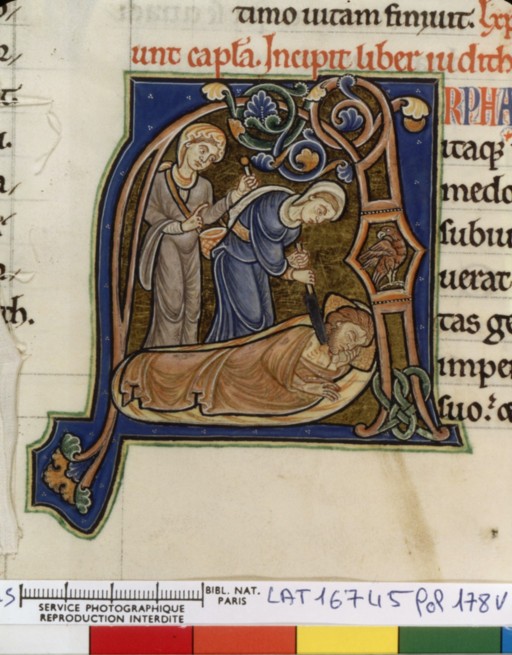 timo uitam finiuit. Exp
unt capła. Incipit liber iudith
RPHA
itaqꝫ
medo
subiu
uerat
th.
tas ge
impe
suo.
SERVICE PHOTOGRAPHIQUE
REPRODUCTION INTERDITE
BIBL. NAT.
PARIS
LAT 16745 fol 178v